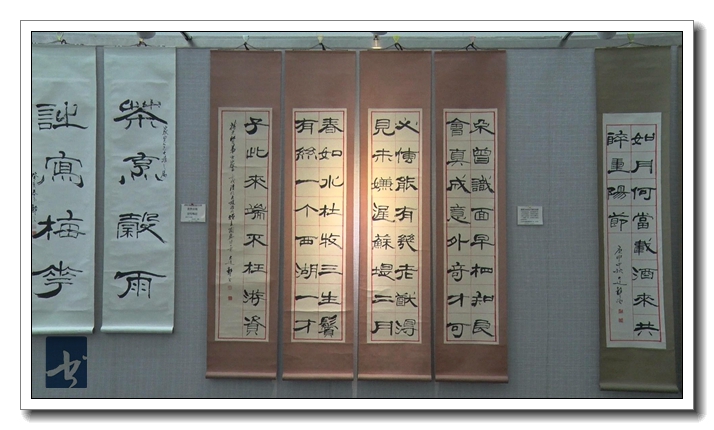 如月何當載酒來共
醉重陽節
不曾識面早相知良
會真成意外奇才可
必傳能有幾老猶得
見未嫌遲蘇堤二月
春如水杜牧三生鬢
有絲一个西湖一才
子此來端不枉游資
茶烹穀雨
詩寫梅花